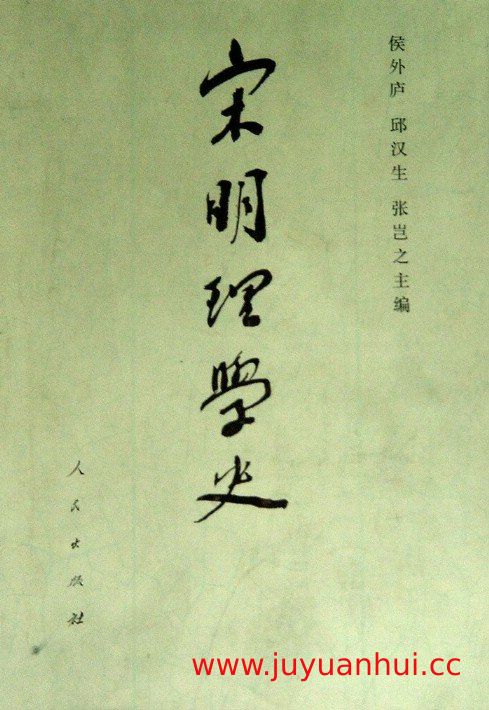 侯外庐 邱汉生 张岂之主编
宋明理学史
人民出版社
www.juyuanhui.cc